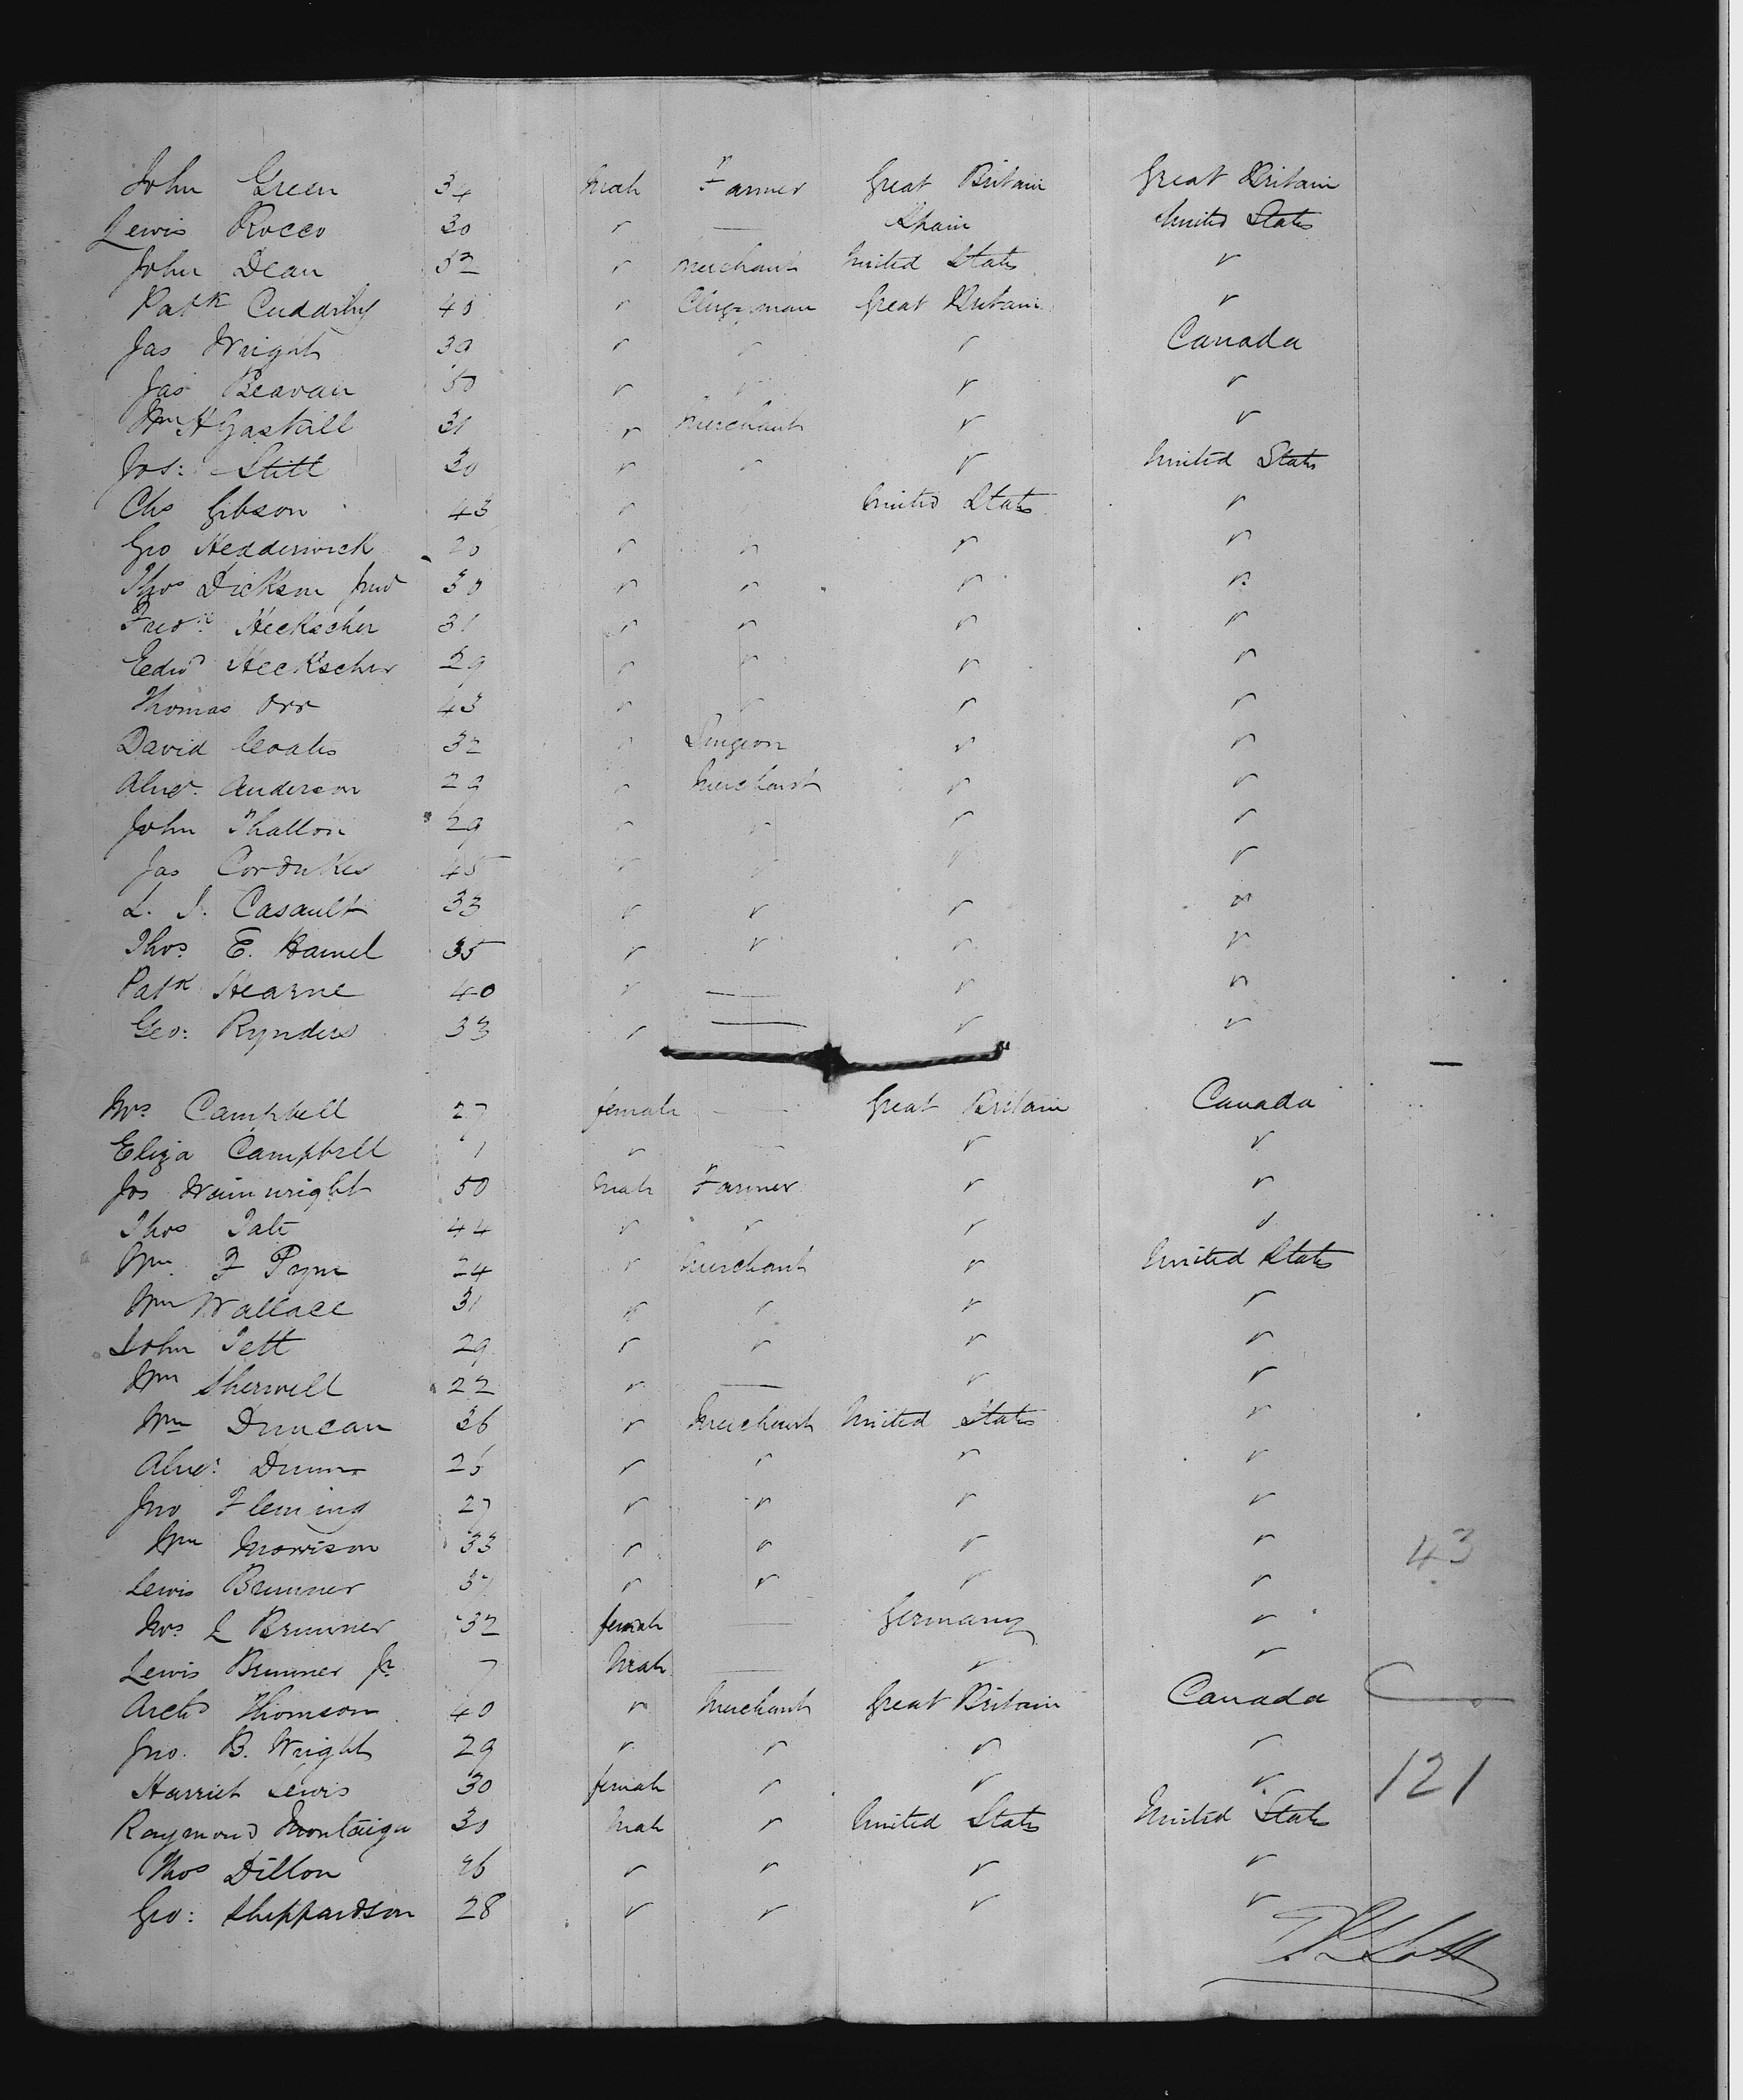 John Green 34 Male Farmer Great Britain Great Britain
Lewis Rocco 30 " — Spain United States
John Dean 52 " Merchant United States "
Patk Cuddihy 40 " Clergyman Great Britain "
Jas Wright 39 " " " Canada
Jas Beavan 50 " " " "
Wm H Gaskill 31 " Merchant " "
Jos: Stitt 30 " " " United States
Chs Gibson 43 " United States "
Geo Hedderwick 20 " " " "
Thos Dickson Junr 30 " " " "
Fredk Heckscher 31 " " " "
Edwd Heckscher 29 " " " "
Thomas Orr 43 " " " "
David Coates 32 " Surgeon " "
Alexr. Anderson 29 " Merchant " "
John Thallon 29 " " " "
Jas Cordukes 45 " " " "
L. J. Casault 33 " " " "
Thos. E. Hamel 35 " " " "
Patk Hearne 40 " — " "
Geo: Rynders 33 " — " "
Mrs Campbell 27 female — Great Britain Canada
Eliza Campbell 1 " — " "
Jos Wainwright 50 Male Farmer " "
Thos Tate 44 " " " "
Wm. F Pym 24 " Merchant " United States
Wm Wallace 31 " " " "
John Tett 29 " " " "
Wm Sherwell 22 " — " "
Wm Duncan 36 " Merchant United States "
Alexr: Dunn " " " "
Jno Fleming 27 " " " "
Wm Morrison 33 " " " " 43
Lewis Brunner 37 " " " "
Mrs L Brunner 32 female — Germany "
Lewis Brunner Jr 7 Male — " "
Archd Thomson 40 " Merchant Great Britain Canada
Jno. B. Wright 29 " " " "
Harriet Lewis 30 female " " " 121
Raymond Montaigu 30 Male " United States United States
Thos Dillon 26 " " " "
Geo: Sheppardson 28 " " " "